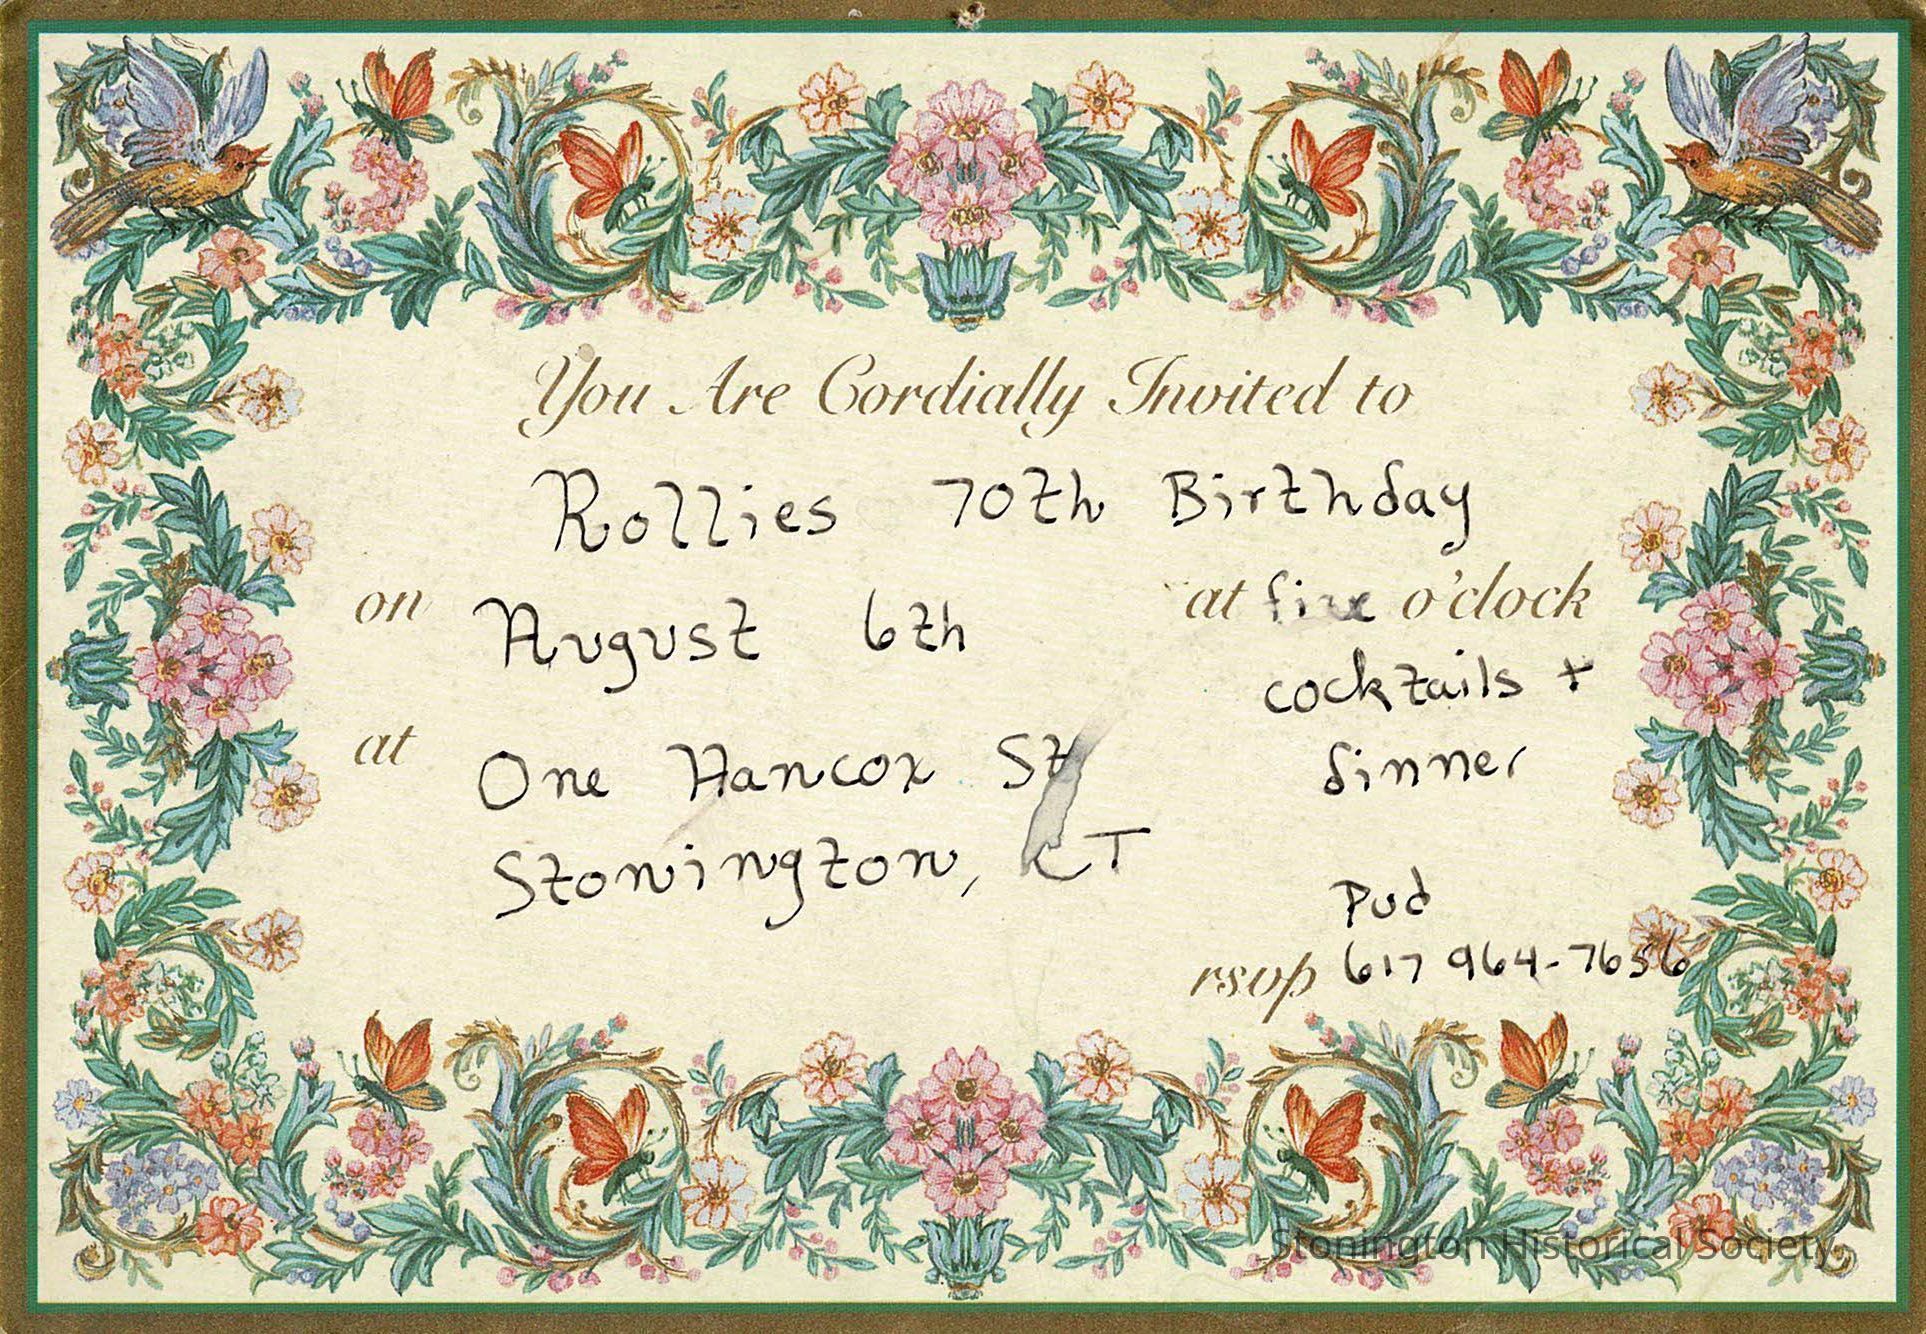 You Are Cordially Invited to
Rollies 70th Birthday
on August 6th
at five o'clock
cocktails +
dinner
at One Hancox St
Stonington, CT
Pud
rsvp 617 964-7656
Stonington Historical Society